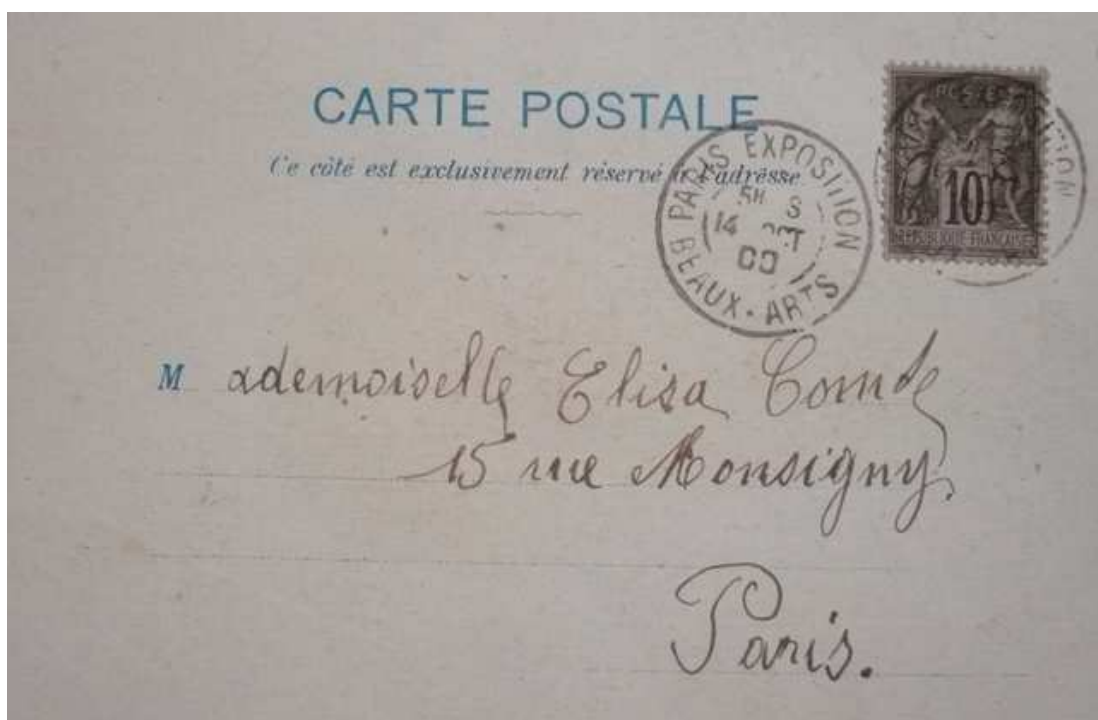 CARTE POSTALE
Ce côté est exclusivement réservé à l'adresse
PARIS EXPOSITION
5H S
14 OCT
00
BEAUX-ARTS
POSTES
10
REPUBLIQUE FRANCAISE
Mademoiselle Elisa Comte
15 rue Monsigny
Paris.